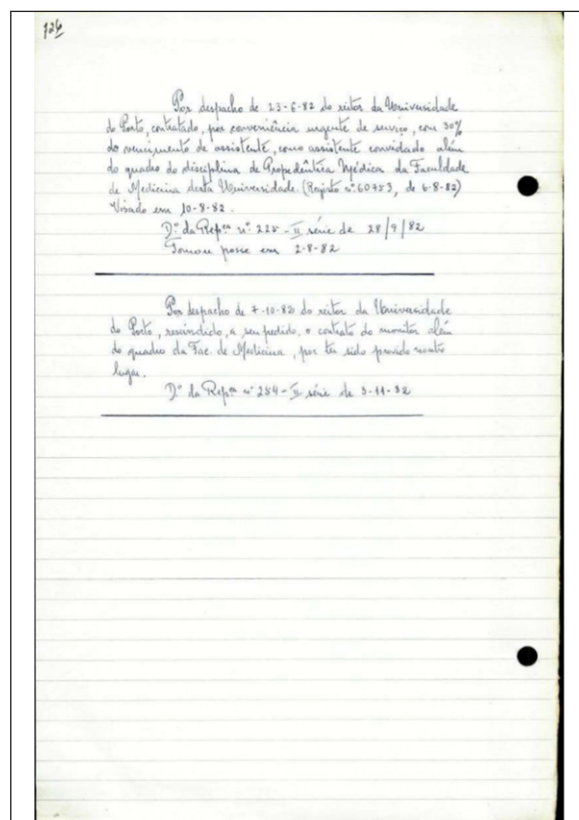 724
Por despacho de 23-6-82 do reitor da Universidade
do Porto, contratado, por conveniência urgente de serviço, com 30%
do vencimento de assistente, como assistente convidado além
do quadro da disciplina de Propedêutica Médica da Faculdade
de Medicina desta Universidade. (Registo nº 60753, de 6-8-82)
Visado em 10-8-82.
D.º da Rep.ca nº 225 - II série de 28/9/82
Tomou posse em 2-8-82
Por despacho de 7-10-82 do reitor da Universidade
do Porto, rescindido, a seu pedido, o contrato de monitor além
do quadro da Fac. de Medicina, por ter sido provido noutro
lugar.
D.º da Rep.ca nº 254 - II série de 3-11-82